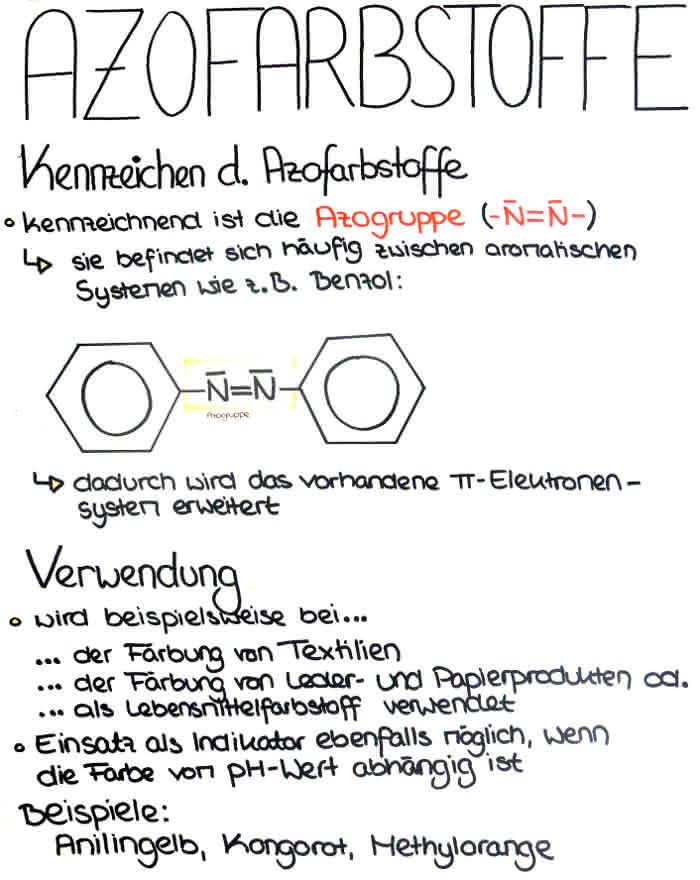 AZOFARBSTOFFE
Kennzeichen d. Azofarbstoffe
• kennzeichnend ist die Azogruppe (-N̄=N̄-)
↳ sie befindet sich häufig zwischen aromatischen
Systemen wie z.B. Benzol:
-N̄=N̄-
Azogruppe
↳ dadurch wird das vorhandene π-Elektronen-
system erweitert
Verwendung
• wird beispielsweise bei...
... der Färbung von Textilien
... der Färbung von Leder- und Papierprodukten od.
... als Lebensmittelfarbstoff verwendet
• Einsatz als Indikator ebenfalls möglich, wenn
die Farbe vom pH-Wert abhängig ist
Beispiele:
Anilingelb, Kongorot, Methylorange